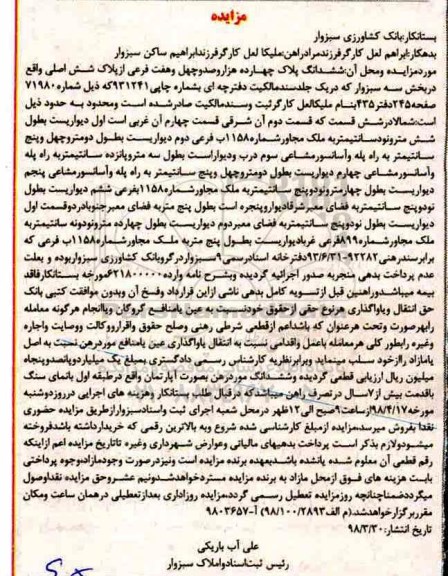 مزایده
بستانکار:بانک کشاورزی سبزوار
بدهکار:ابراهم لعل کارگرفرزندمرادراهن:ملیکا لعل کارگرفرزندابراهیم ساکن سبزوار
موردمزایده ومحل آن:ششدانگ پلاک چهارده هزاروصدوچهل وهفت فرعی ازپلاک شش اصلی واقع
دربخش سه سبزوار که دریک جلدسندمالکیت دفترچه ای بشماره چاپی۹۳۱۲۴۱که ذیل شماره۷۱۹۸۰
صفحه۲۴۵دفتر۴۳۵بنام ملیکالعل کارگرثبت وسندمالکیت صادرشده است ومحدود به حدود ذیل
است:شمالادرشش قسمت که قسمت دوم آن شرقی قسمت چهارم آن غربی است اول دیواریست بطول
شش مترونودسانتیمتربه ملک مجاورشماره۱۱۵۸ب فرعی دوم دیواریست بطول دومتروچهل وپنج
سانتیمتر به راه پله وآسانسورمشاعی سوم درب ودیواراست بطول سه متروپانزده سانتیمتربه راه پله
وآسانسورمشاعی چهارم دیواریست بطول دومتروچهل وپنج سانتیمتر به راه پله وآسانسورمشاعی پنجم
دیواریست بطول چهارمترونودوپنج سانتیمتربه ملک مجاورشماره۱۱۵۸بفرعی ششم دیواریست بطول
نودوپنج سانتیمتربه فضای معبرشرقادیواروپنجره است بطول پنج متربه فضای معبرجنوبادردوقسمت اول
دیواریست بطول نودوپنج سانتیمتربه فضای معبردوم دیواریست بطول چهارده مترونودونه سانتیمتربه
ملک مجاورشماره۸۹۹فرعی غربادیواریست بطول پنج متربه ملک مجاورشماره۱۱۵۸ب فرعی که
برابرسندرهنی۹۲۲۸۲-۹۳/۶/۳۱دفترخانه اسنادرسمی۹سبزواردرگروبانک کشاورزی سبزواربوده و بعلت
عدم پرداخت بدهی منجربه صدور اجرائیه گردیده وبشرح نامه وارده۶۲۱۸۰۰۰۰۰مورخه بستانکارفاقد
بیمه میباشدوراهنین قبل ازتسویه کامل بدهی ناشی ازاین قرارداد وفسخ آن وبدون موافقت کتبی بانک
حق انتقال ویاواگذاری هرنوع حقی ازحقوق خودنسبت به عین یامنافع گروگان ویاانجام هرگونه معامله
رابهرصورت وتحت هرعنوان که باشداعم ازقطعی شرطی رهنی وصلح حقوق واقرارووکالت ووصایت واجاره
وغیره رابطور کلی هرمعامله باعمل واقدامی نسبت به انتقال یاواگذاری عین یامنافع موردرهن نسبت به اصل
یامازاد راازخود سلب مینماید وبرابرنظریه کارشناس رسمی دادگستری بمبلغ یک میلیاردوپانصدوپنجاه
میلیون ریال ارزیابی قطعی گردیده وششدانگ موردرهن بصورت آپارتمان واقع درطبقه اول بانمای سنگ
باقدمت بیش از۷سال درتصرف راهن میباشدکه درقبال طلب بستانکار وهزینه های اجرایی درروزدوشنبه
مورخه۹۸/۴/۱۷ازساعت۹صبح الی۱۲ظهر درمحل شعبه اجرای ثبت واسنادسبزوارازطریق مزایده حضوری
نقدا بفروش میرسد،مزایده ازمبلغ کارشناسی شده شروع وبه بالاترین رقمی که خریدارداشته باشدفروخته
میشودولازم بذکر است پرداخت بدهیهای مالیاتی وعوارض شهرداری وغیره تاتاریخ مزایده اعم ازاینکه
رقم قطعی آن معلوم شده یانشده باشدبعهده برنده مزایده است ونیزدرصورت وجودمازاد،وجوه پرداختی
بابت هزینه های فوق ازمحل مازاد به برنده مزایده مستردخواهدشدونیم عشروحق مزایده نقداوصول
میگرددضمناچنانچه روزمزایده تعطیل رسمی گردد،مزایده روزاداری بعدازتعطیلی درهمان ساعت ومکان
مقرربرگزارخواهدشد.(م الف۹۸/۱۰۰/۲۸۹۳) آ-۹۸۰۳۶۵۷
تاریخ انتشار:۹۸/۳/۳۰
علی آب باریکی
رئیس ثبت‌اسنادواملاک سبزوار